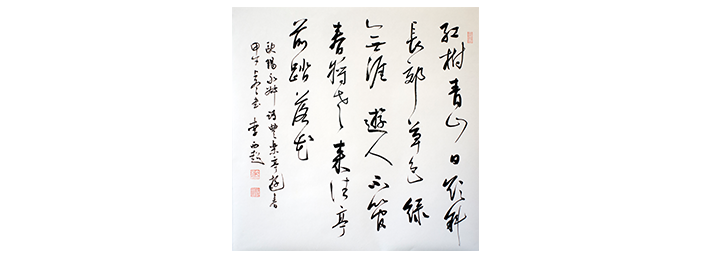 紅樹青山日欲斜
長郊草色綠
無涯遊人不管
春將老來往亭
前踏落花
歐陽永叔詩豐樂亭遊春
甲午書李